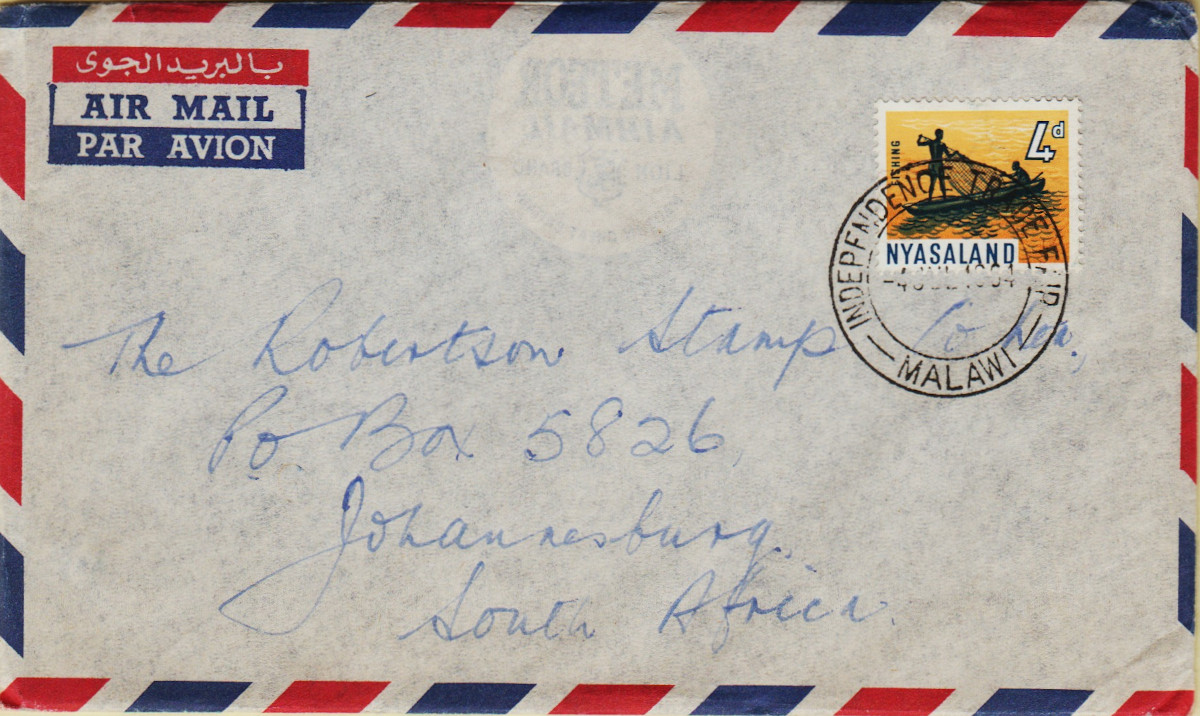 بالبريد الجوى
AIR MAIL
PAR AVION
4d
FISHING
NYASALAND
INDEPENDENCE TRADE FAIR
-4 JUL 1964
MALAWI
The Robertson Stamp Co
P.O. Box 5826,
Johannesburg.
South Africa.